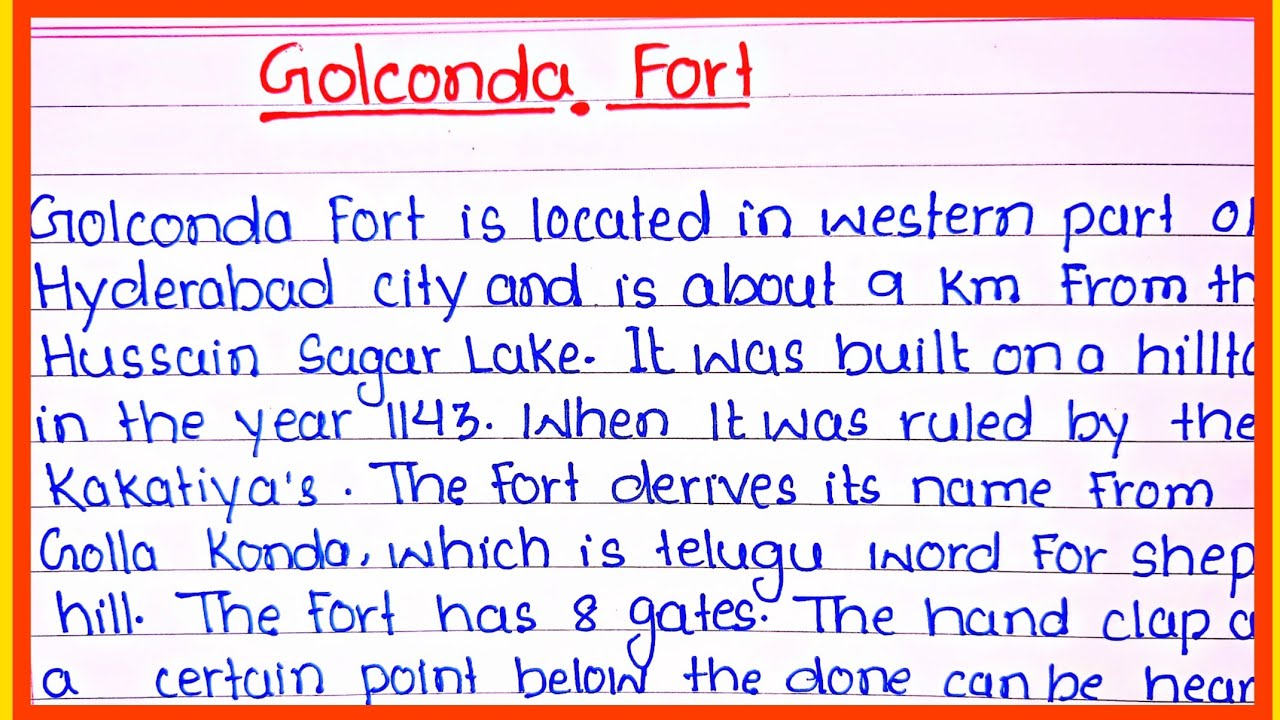 Golconda Fort
Golconda Fort is located in western part of
Hyderabad city and is about 9 Km From th
Hussain Sagar Lake. It was built on a hillto
in the year 1143. When It was ruled by the
Kakatiya's. The Fort derives its name From
Golla Konda, which is telugu word For shep
hill. The Fort has 8 gates. The hand clap a
a certain point below the done can be hear